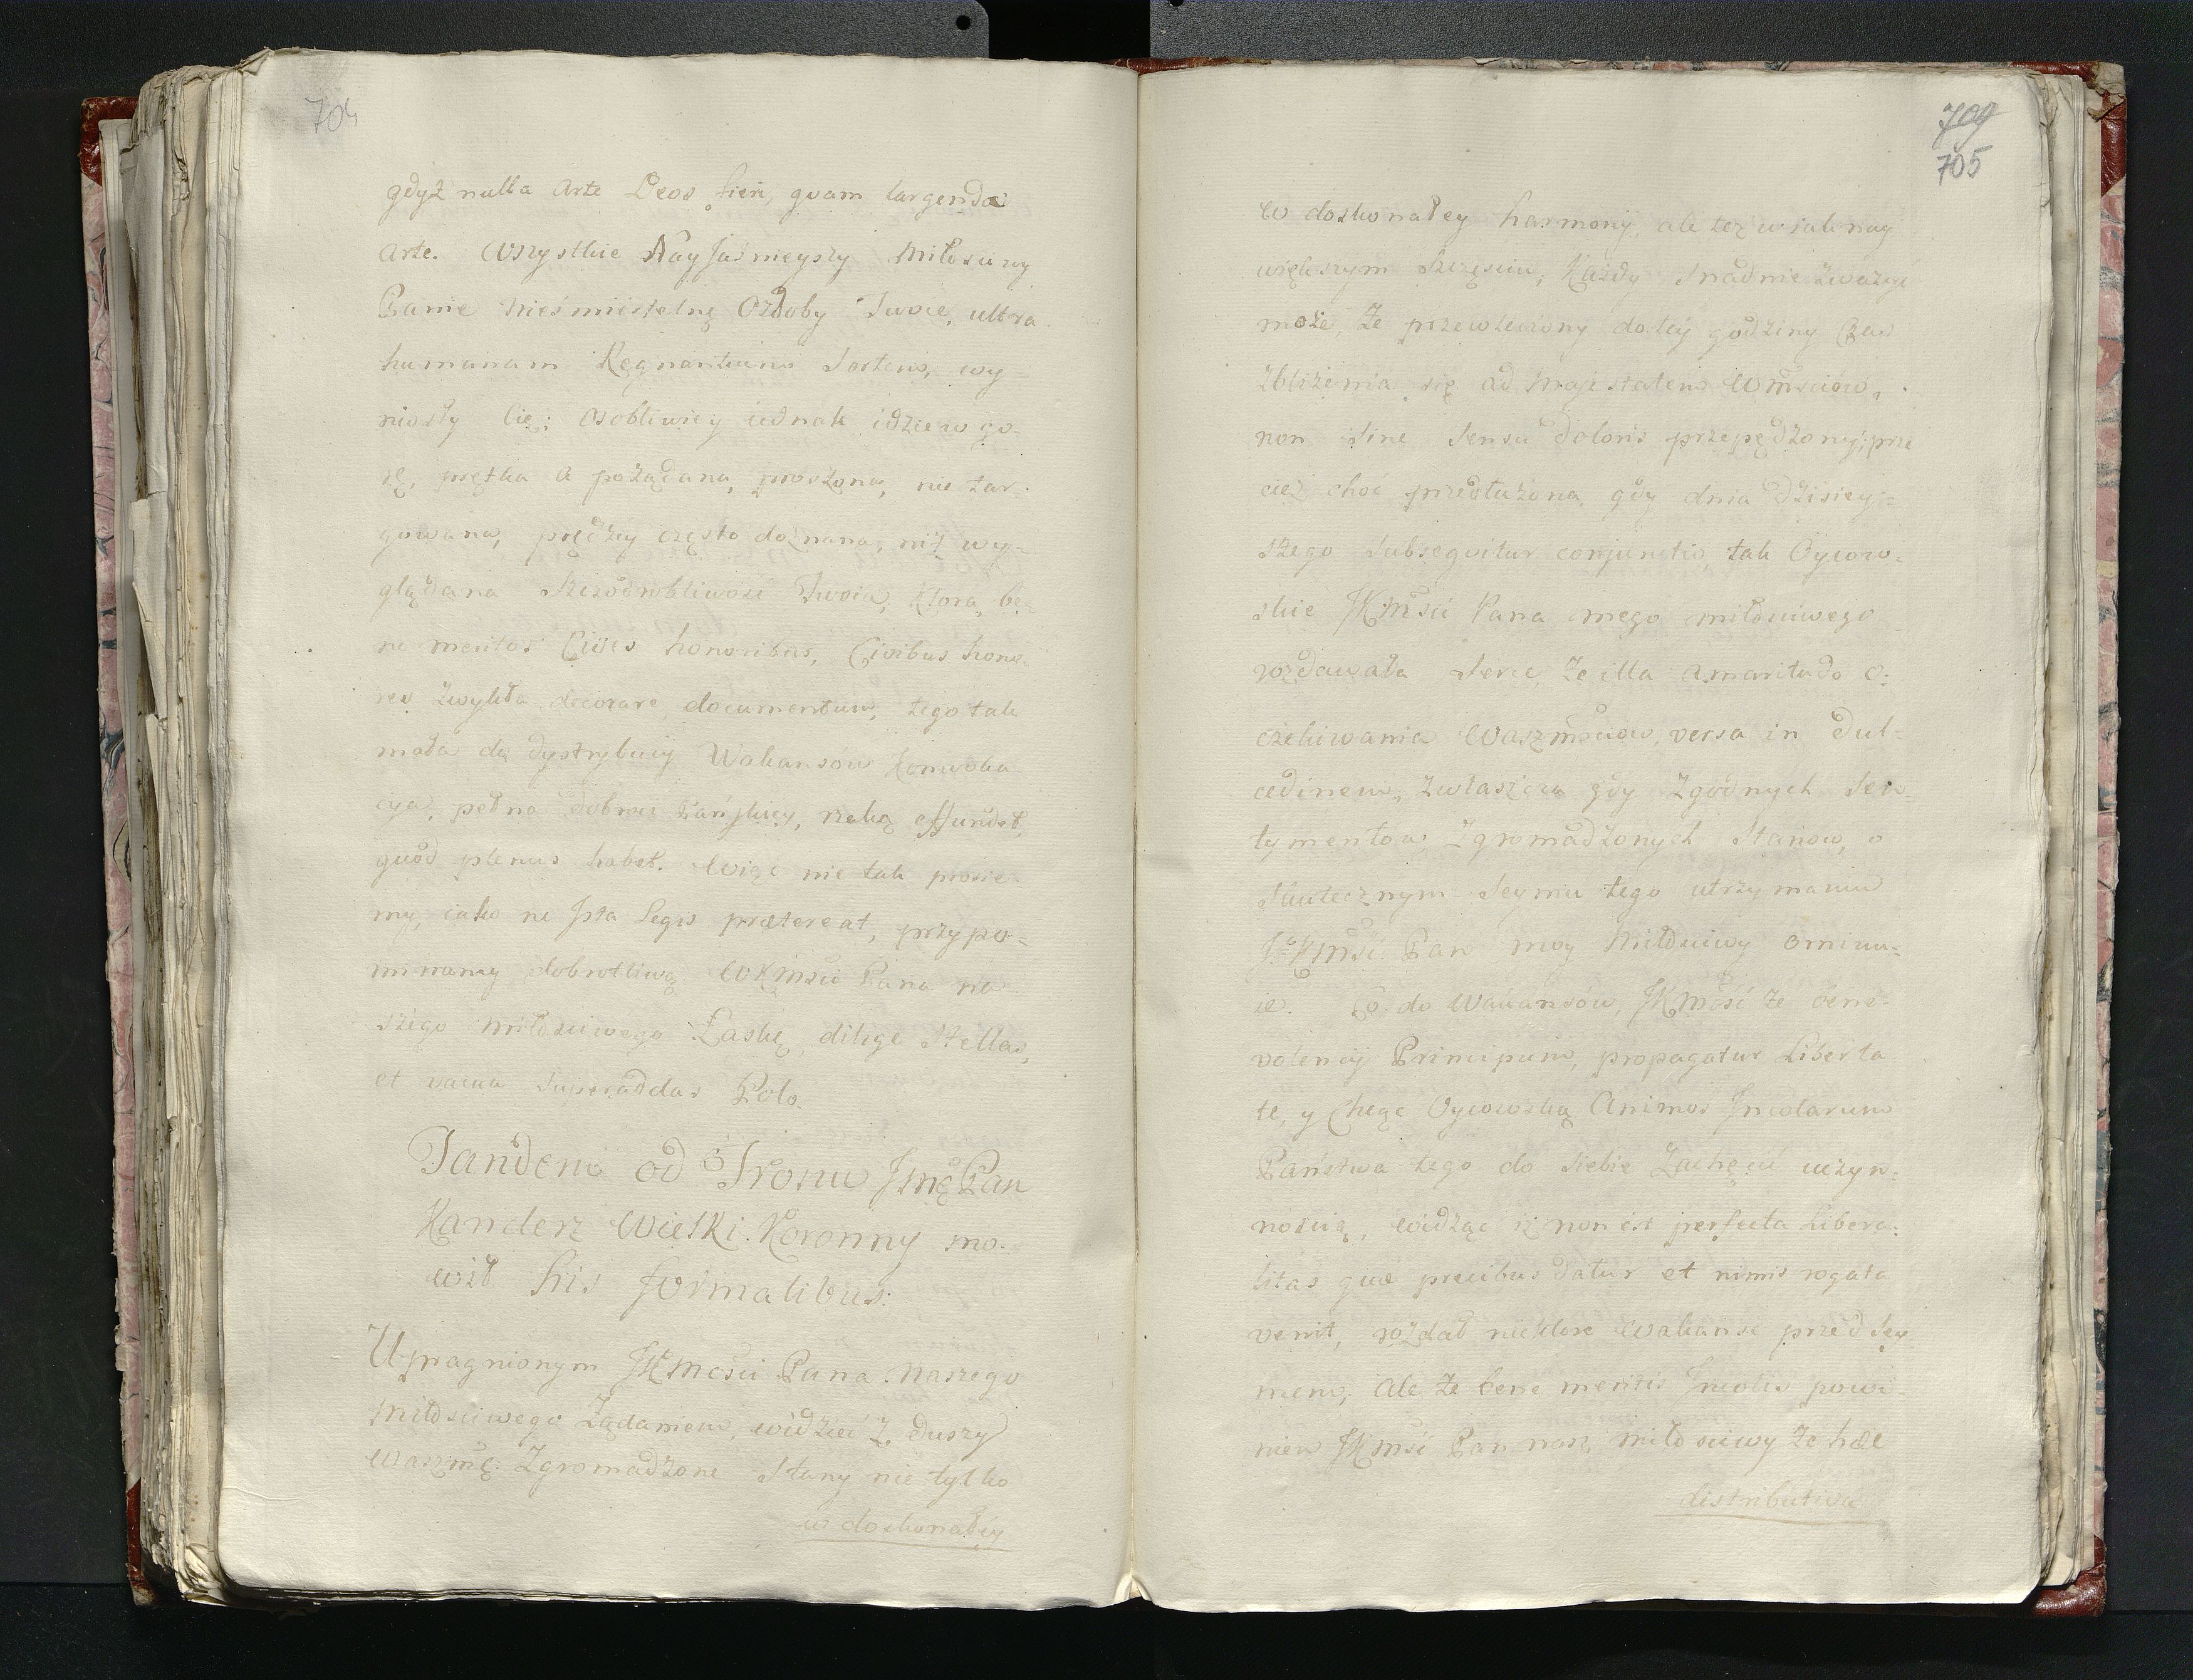 704
gdyż nulla arte Deos fieri, quam largenda
arte. Wszystkie Nayjaśnieyszy Miłościwy
Panie nieśmiertelnę Ozdoby Twoie, ultra
humanam Regnantium Sortem, wy-
niosły Cię; osobliwiey iednak idzie w go-
rę, prętka a pożądana, proszona, nie tar-
gowana, prędzey często doznana, niż wy-
glądana Szczodrobliwość Twoia, Ktora, be-
ne meritos Cives honoribus, Civibus hono-
res zwykła decorare, documentum, tego tak
mała do dystrybucij Wakansów Konwoka
cya, pełna dobroci Pańskiey, rzekę effundet,
quod plenus habet. Więc nie tak prosie-
my, iako ne Ista Legis prætereat, przypo-
minamy dobrotliwą WKMści Pana na-
szego miłościwego Łaskę, dilige Stellas,
et vacua Superaddas Polo.
Tandem od Tronu Jmę Pan
Kanclerz Wielki Koronny mo-
wił his formalibus:
Upragnionym JKMości Pana Naszego
Miłościwego Żądaniem, widzieć z duszy
Waszmę: Zgromadzone Stany nie tylko
w doskonałey
709
705
w doskonałey harmonij, ale też w iak nay
większym Szczęściu, Każdy snadnie zważyć
może, że przewleczony do tey godziny Czas
zbliżenia się ad Majestatem WMściow,
non sine sensu doloris przepędzony; prze
cież choć przedłużona, gdy dnia dzisiey-
szego Subsequitur conjunctio, tak Oycow-
skie JKMści Pana mego miłościwego
rozdawała Serce, że illa amaritudo o-
czekiwania Waszmściow, versa in dul-
cedinem, zwłaszcza gdy zgodnych Sen-
tymentow Zgromadzonych Stanow, o
Skutecznym Seymu tego utrzymaniu
JoKMść Pan moy Miłościwy ominu-
ie. Co do Wakansów, JKMość że bene-
volencij Principum, propagatur Liberta
te, y Chęcę Oycowską Animos Incolarum
Państwa tego do siebie zachęcić uczyn-
nością, widząc iż non est perfecta Libera-
litas quæ precibus datur et nimis rogata
venit, rozdał niektore Wakanse przed Sey
mem, Ale że bene meritis Incolis powi-
nien JKMść Pan nasz miłościwy że hæc
distributiva